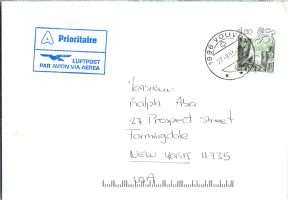 A Prioritaire
LUFTPOST
PAR AVION VIA AEREA
1896 VOUVRY
Monsieur
Ralph Aba
27 Prospect Street
Farmingdale
NEW YORK 11735
USA